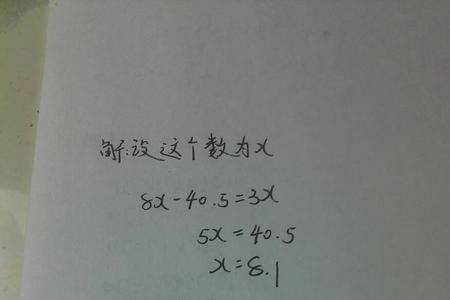 解:设这个数为x
8x-40.5=3x
5x=40.5
x=8.1